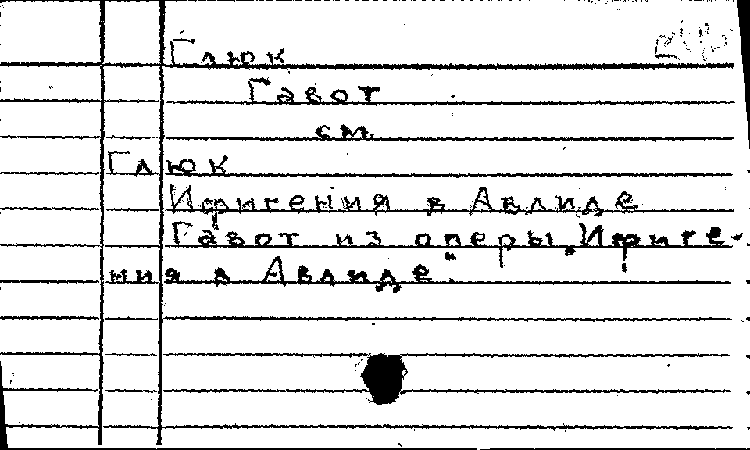 Глюк
Гавот
см.
Глюк
Ифигения в Авлиде
Гавот из оперы „Ифиге-
ния в Авлиде".